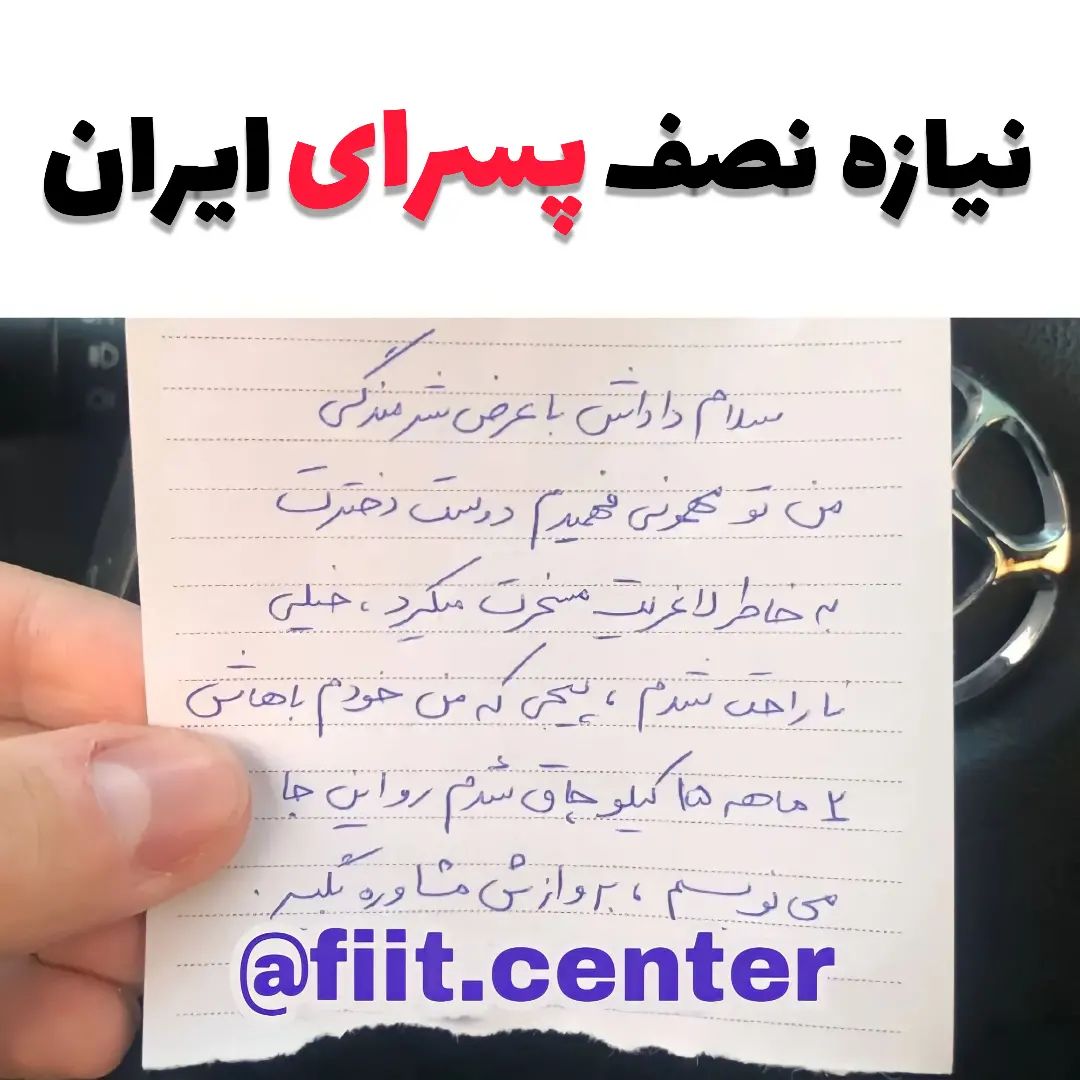 نیازه نصف پسرای ایران
سلام داداش با عرض شرمندگی
من تو مهمونی فهمیدم دوست دخترت
به خاطر لاغریت مسخرت میکرد، خیلی
ناراحت شدم، پیجی که من خودم باهاش
۲ ماهه ۱۵ کیلو چاق شدم رو این جا
می نویسم، برو ازش مشاوره بگیر.
@fiit.center